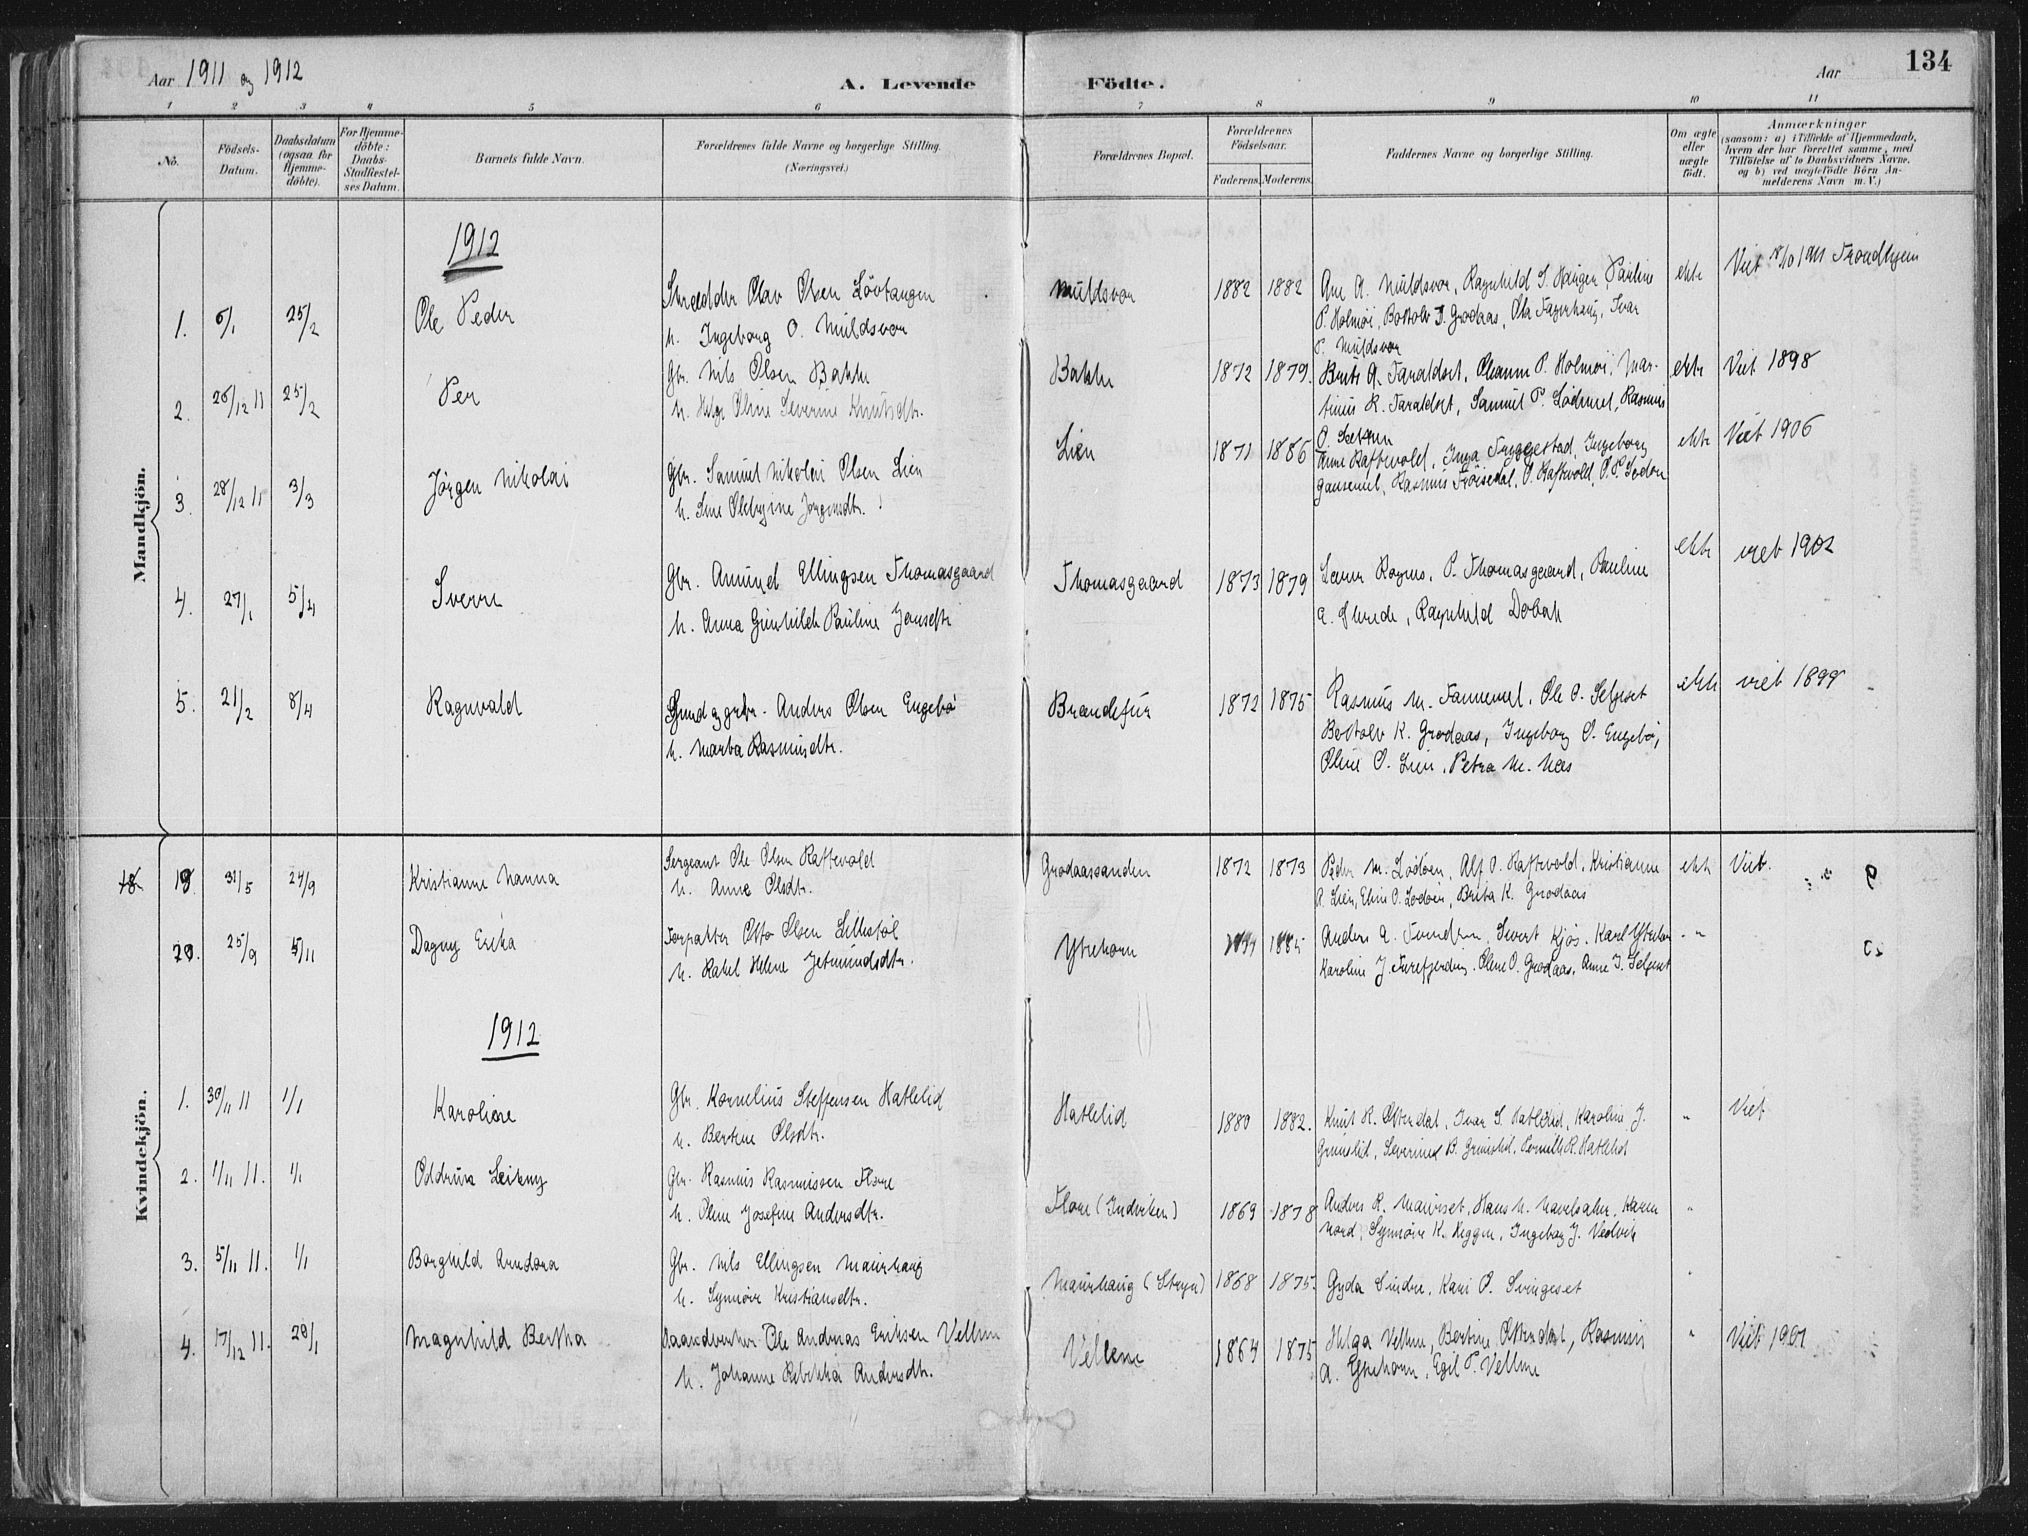 134
Aar 1911 og 1912
A. Levende Födte.
Aar
1 2 3 4 5 6 7 8 9 10 11
No.
Födsels-Datum.
Daabsdatum (ogsaa for Hjemmedöbte).
For Hjemmedöbte: Daabs-Stadfæstelses Datum.
Barnets fulde Navn.
Forældrenes fulde Navne og borgerlige Stilling. (Næringsvei.)
Forældrenes Bopæl.
Forældrenes Födselsaar.
Faderens. Moderens.
Faddernes Navne og borgerlige Stilling.
Om ægte eller uægte födt.
Anmærkninger
(saasom: a) i Tilfælde af Hjemmedaab, hvem der har forrettet samme, med Tilföielse af to Daabsvidners Navne, og b) ved uægtefödte Börn Anmelderens Navn m. V.)
Mandkjön.
1912
1. 6/1 25/2 Ole Peder
Skrædder Olav Olsen Lövtangen
h. Ingeborg O. Muldsvor
Muldsvor 1882 1882
Ane A. Muldsvor, Ragnhild S. Haugen, Pauline
P. Holmöi, Bottolv J. Grodaas, Ola Fagerhaug, Ivar
P. Muldsvor
ekte Viet 18/10 1911 Trondhjem
2. 26/12 11 25/2 Per
Gbr. Nils Olsen Bakke
h. Helge Oline Severine Knutsdtr.
Bakke 1872 1879.
Brite A. Taraldset, Oleanne P. Holmöi, Mar-
tinus R. Taraldset, Samuel P. Lödemel, Rasmus
ekte Viet 1898
3. 28/12 11 3/3 Jörgen Nikolai
Gbr. Samuel Nikolai Olsen Lien
h. Sine Olebrgine Jörgensdtr.
Lien 1871 1886
Anne Raftevold, Inga Tryggestad, Ingeborg
Gausemel, Rasmus Fröisedal, O. Raftevold, P. P. Lodöen
ekte Viet 1906
4. 27/1 5/4 Sverre
Gbr. Amund Ellingsen Thomasgaard
h. Anna Gunhilde Pauline Jonsdtr
Thomasgaard 1873 1879
P. Thomasgaard, Pauline
Ragnhild Dobak
ekte viet 1902
5. 21/2 8/4 Ragnvald
Anders Olsen Engebö
h. Marta Rasmusdtr.
1872 1875
Rasmus M. Tannemel, Ole O. Seljeset
Bottolv K. Grodaas, Ingeborg O. Engebö,
Oline O. Lien, Petra M. Nes
ekte viet 1899
Kvindekjön.
18 19 31/5 24/9 Kristianne Nanna
Sergeant Ole Olsen Raftevold
h. Anne Olsdtr.
Grodaassanden 1872 1873
Peder M. Lodöen, Alf O. Raftevold, Kristianne
A. Lien, Eline O. Lodöen, Brita K. Grodaas
ekte Viet.
20. 25/9 5/11 Dagny Erika
Forpakter Otto Olsen Lillestöl
h. Rakel Helene Jetmundsdtr.
Ytrehorn 1885
Sivert Kjös, Karl Ytrehorn
Karoline J. Oline O. Grodaas, Anne J. Seljeset
"
1912
1. 30/11 11 1/1 Karoline
Gbr. Kornelius Steffensen Hatlelid
h. Bertine Olsdtr.
Hatlelid 1880 1882.
Knut R. Otterdal, Ivar S. Hatlelid, Karoline J.
Grimelid, Severine B. Grimelid, R. Hatlelid
" Viet
2. 1/11 11. 1/1 Oddrun
Gbr. Rasmus Rasmussen Flore
h. Oline Josefine Andersdtr.
Flore (Indviken) 1869 1878
Anders R. Hans M. Karen
Nord, Synnöve K. Heggen, Ingeborg J. Vedvik
"
3. 5/11 11. 1/1 Borghild
Gbr. Nils Ellingsen Maurhaug
h. Synnöve Kristiansdtr.
Maurhaug (Stryn) 1868 1875.
Gyda Sindre, Kari O. Svingeset
"
4. 17/12 11. 28/1 Magnhild Bertha
Haandverker Ole Andreas Eriksen Vellene
h. Johanne Rebekka Andersdtr.
Vellene 1864 1875
Helga Vellene, Bertine Otterdal, Rasmus
A. Ytrehorn, Egil P. Vellene
" Viet 1901